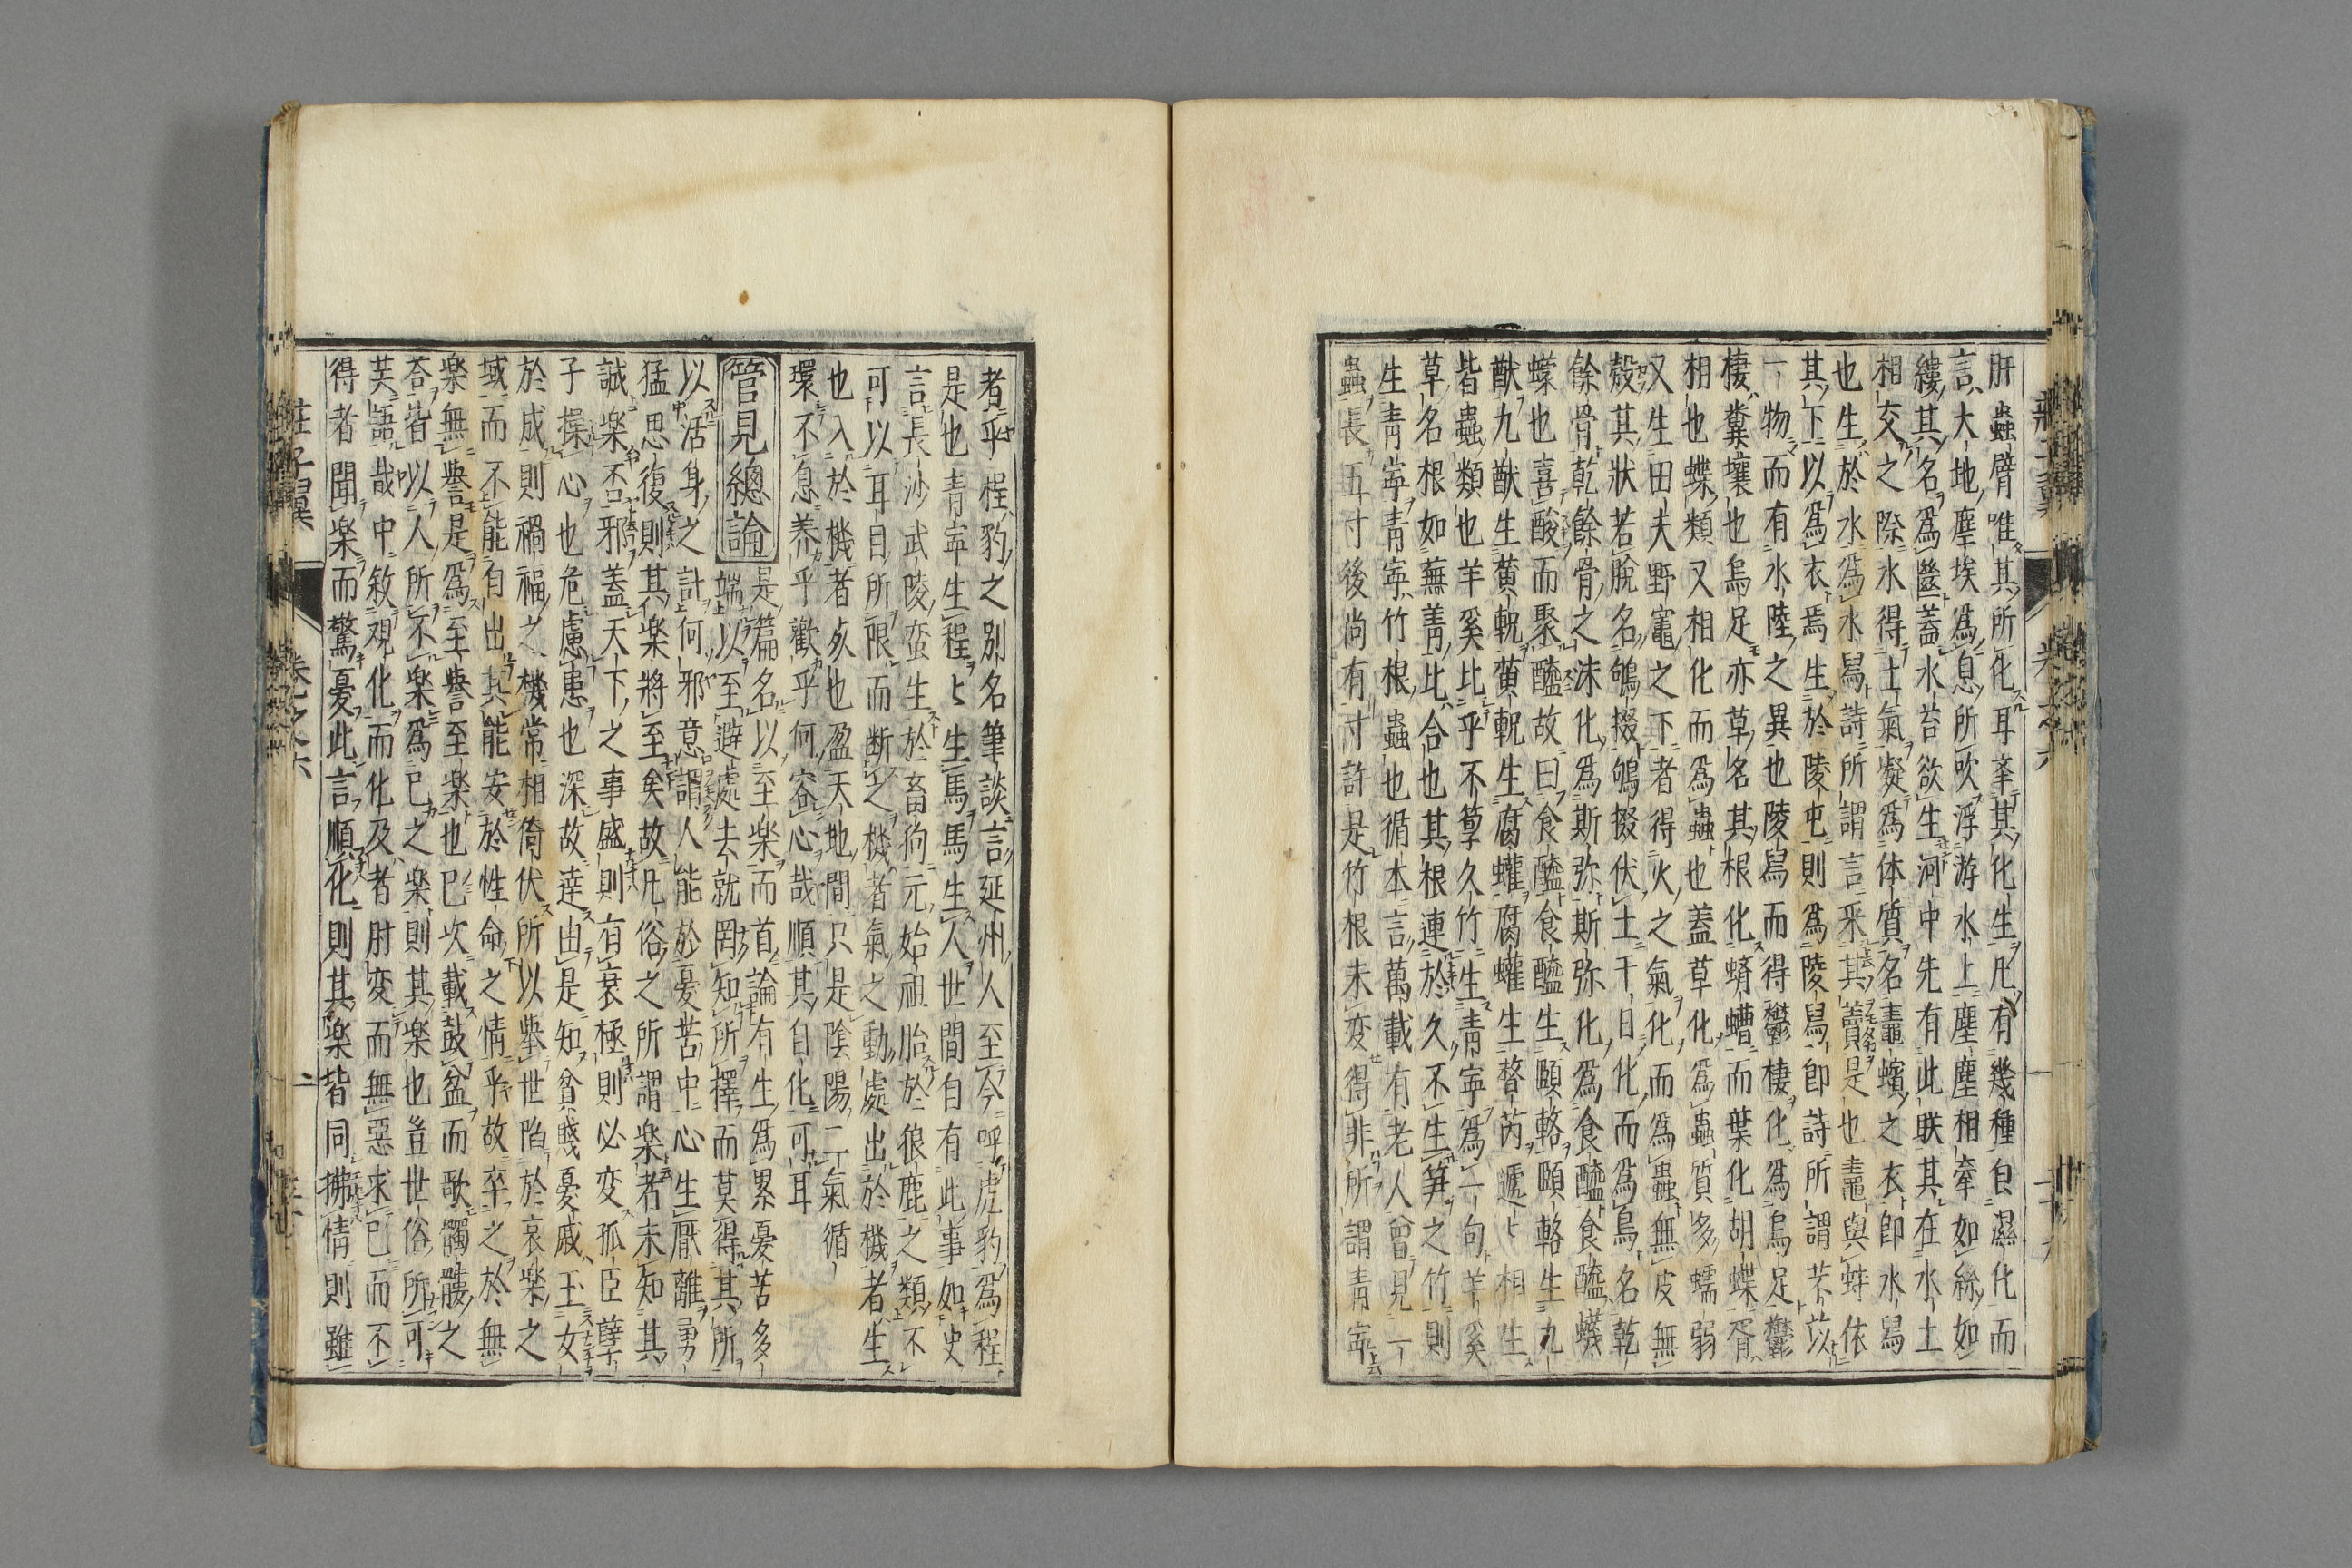 肝蟲臂唯其所化耳峯其化生凡有幾種自濕化而
言大地塵埃為息所吹浮游水上塵塵相牽如絲如
縷其名為㡭蓋水苔欲生河中先有此联其在水土
相交之際水得土氣凝為体質名鼃蠙之衣即水舄
也生於水為水舄詩所謂言采其藚是也鼃與蚌依
其下以為衣焉生於陵屯則為陵舄即詩所謂芣苡
一物而有水陸之異也陵舄而得鬱棲化為烏足鬱
棲糞壤也烏足亦草名其根化蠐螬而葉化胡蝶胥
相也蝶類又相化而為蟲也蓋草化為蟲質多蠕弱
又生田夫野竈之下者得火之氣化而為蟲無皮無
殼其狀若脫名鴝掇鴝掇伏土千日化而為鳥名乾
餘骨乾餘骨之沫化為斯弥斯弥化為食醯食醯蠛
蠓也喜酸而聚醯故曰食醯食醯生頤輅頤輅生九
猷九猷生黄軦黄軦生腐蠸腐蠸生瞀芮遞〻相生
皆蟲類也羊奚比乎不箰久竹生青寧為一句羊奚
草名根如蕪菁比合也其根連於久不生笋之竹則
生青寧青寧竹根蟲也循本言萬載有老人曾見一
蟲長五寸後尚有寸許是竹根未変得非所謂青寧
者乎程豹之別名筆談言延州人至今呼虎豹為程
是也青寧生程〻生馬馬生人世間自有此事如史
言長沙武陵蛮生於畜狗元始祖胎於狼鹿之類不
可以耳目所限而断之機者氣之動處出於機者生
也入於機者死也盈天地間只是陰陽二氣循
環不息养乎歡乎何容心哉順其自化可耳
管見總論
是篇名以至楽而首論有生為累憂苦多
端以至避處去就罔知所擇而莫得其所
以活身之計何邪意謂人能於憂苦中心生厭離勇
猛思復則其楽將至矣故凡俗之所謂楽者未知其
誠楽否邪蓋天下之事盛則有衰極則必変孤臣孽
子操心也危慮患也深故達由是知貧賤憂戚玉女
於成則禍福之機常相倚伏所以挙世陷於哀楽之
域而不能自出其能安於性命之情乎故卒之於無
楽無誉是為至誉至楽也已次載鼓盆而歌髑髏之
荅皆以人所不楽為已之楽則其楽也豈世俗所可
芙語哉中敘視化而化及者肘変而無惡求已而不
得者聞楽而驚憂此言順化則其楽皆同拂情則雖
莊子翼　卷之六